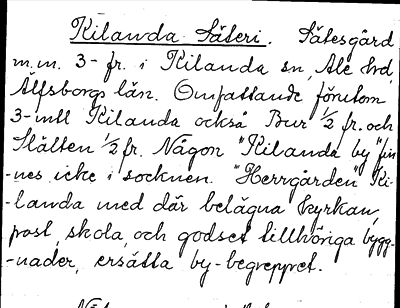 Kilanda Säteri. Sätesgård
m.m. 3- fr. i Kilanda sn, Ale Hd,
Älfsborgs län. Omfattande förutom
3-mtl Kilanda också Bur 1/2 fr. och
Slätten 1/2 fr. Någon "Kilanda by" fin
-nes icke i socknen. "Herrgården" Ki-
-landa med där belägna kyrkan,
post, skola, och godset tillhöriga bygg-
-nader, ersätta by-begreppet.